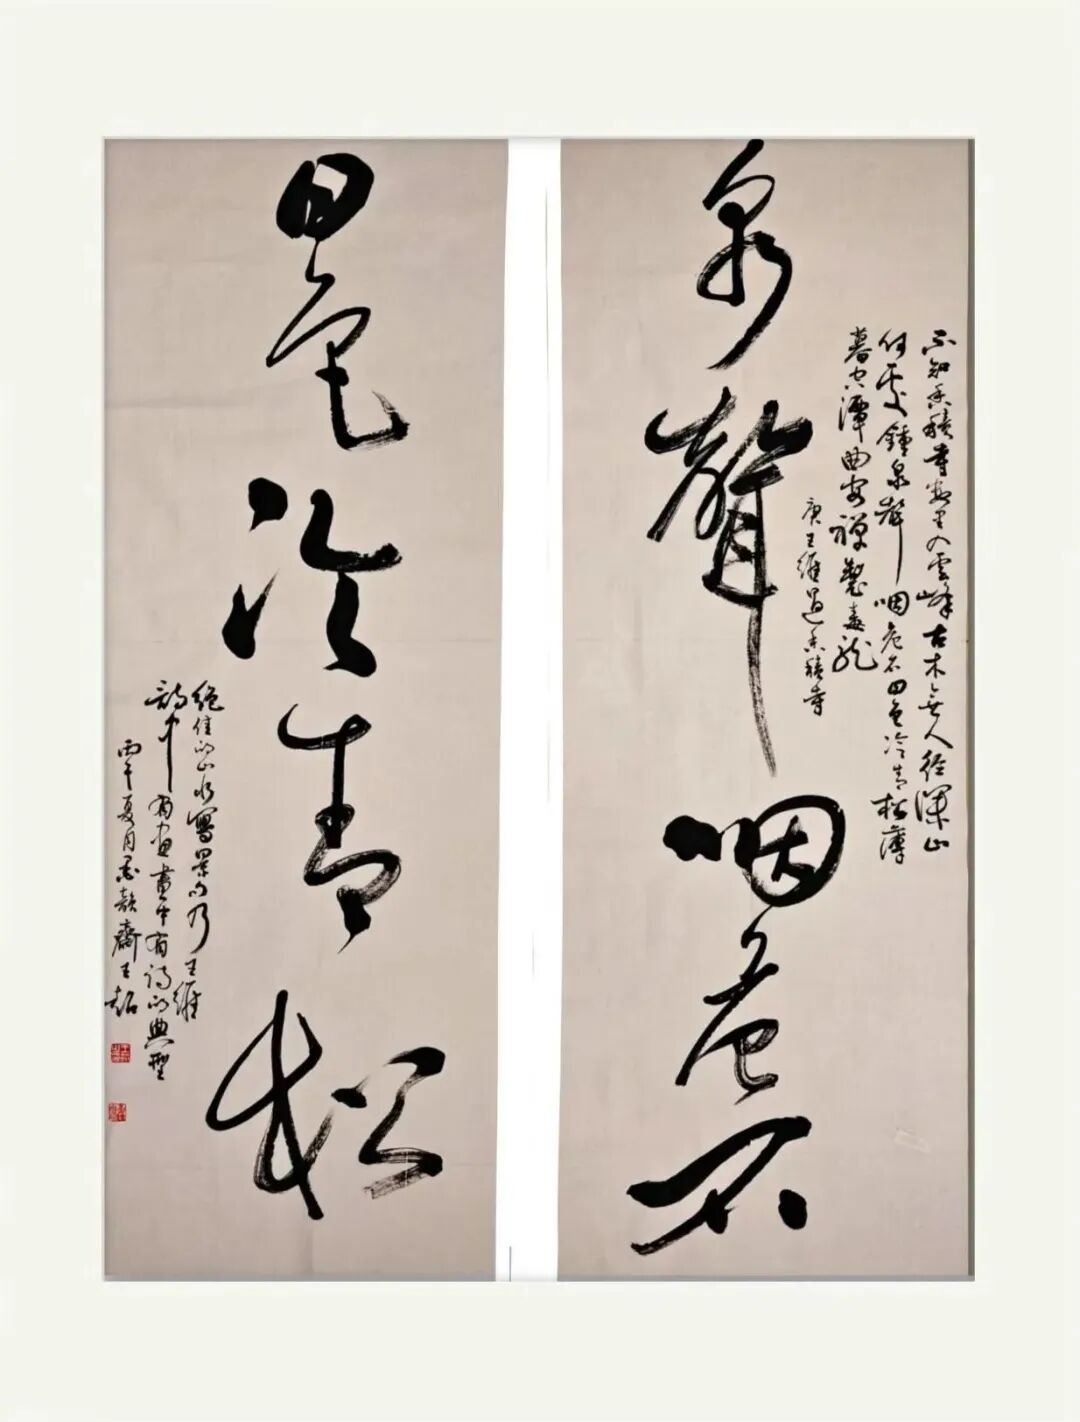 泉聲咽危石
不知香積寺數里入雲峰古木無人徑深山
何處鐘泉聲咽危石日色冷青松薄
暮空潭曲安禪製毒龍
唐王維過香積寺
日色冷青松
絕佳的山水寫景句乃王維
詩中有畫畫中有詩的典型
丙午夏月墨韻齋王超